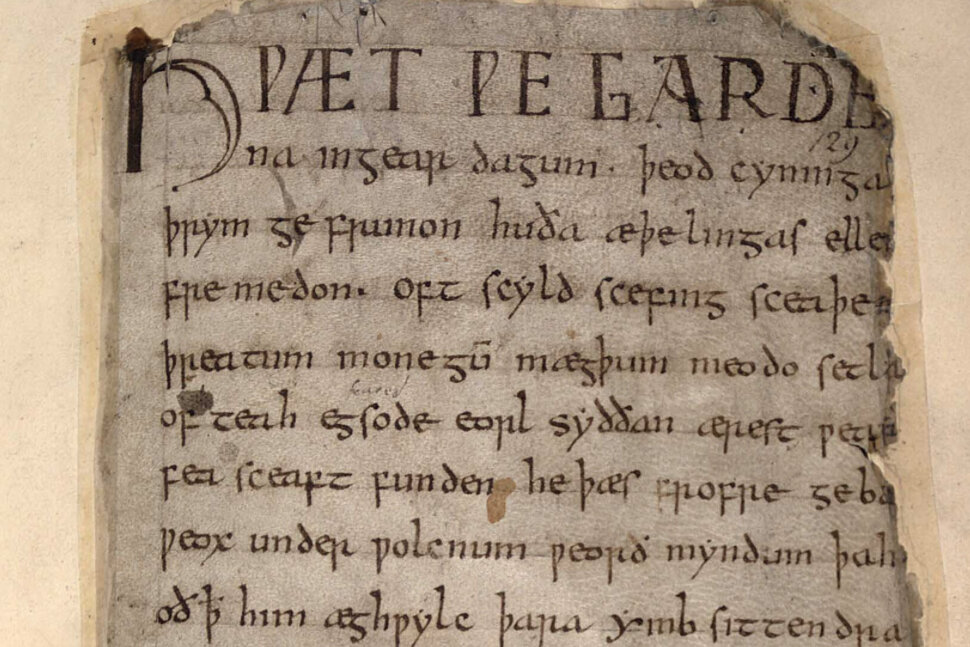 HǷÆT ǷE GARDE
129
na ingear dagum. þeod cyninga
þrym ge frunon huða æþelingas elle
fremedon. oft scyld scefing sceaþe
þreatum monegū mægþum meodo setla
of teah egsode eorl syððan ærest ƿear
fea sceaft funden he þæs frofre geba
ƿeox under ƿolcnum ƿeorð myndum þah
oð ꝥ him æghƿylc þara ymb sittendra